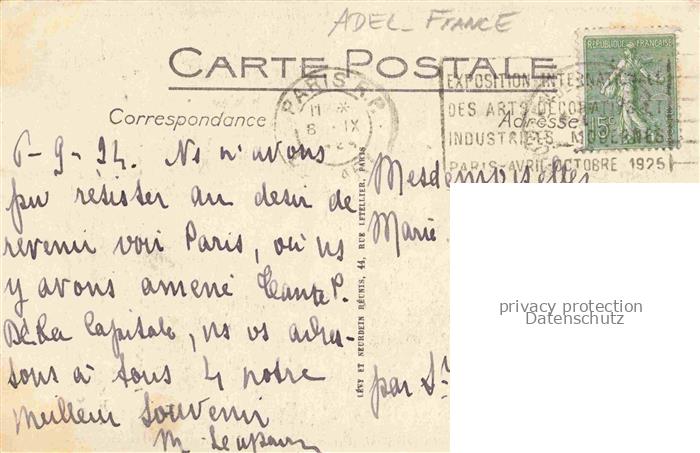 ADEL- FRANCE
CARTE POSTALE
REPUBLIQUE FRANÇAISE
15c
PARIS R.P.
11 *
8 IX
EXPOSITION INTERNATIONALE
DES ARTS DECORATIFS ET
INDUSTRIELS MODERNES
PARIS-AVRIL-OCTOBRE 1925
Correspondance
Adresse
6-9-24. Ns n'avons
pu résister au desir de
revenir voir Paris, où ns
y avons amené tante P.
De la Capitale, ns vs adres-
sons à tous 4 notre
meilleur souvenir
M.
LÉVY ET NEURDEIN RÉUNIS, 44, RUE LETELLIER, PARIS
Mesdemoiselles
Marie
par St
privacy protection
Datenschutz